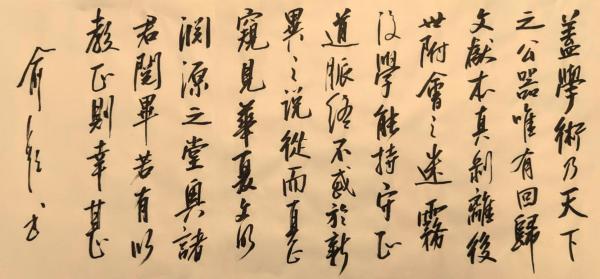 蓋學術乃天下
之公器唯有回歸
文獻本真剝離後
世附會之迷霧
後學能持守正
道脈絡不惑於新
異之說從而真正
窺見華夏文明
淵源之堂奧諸
君閱畢若有以
教正則幸甚
俞 书